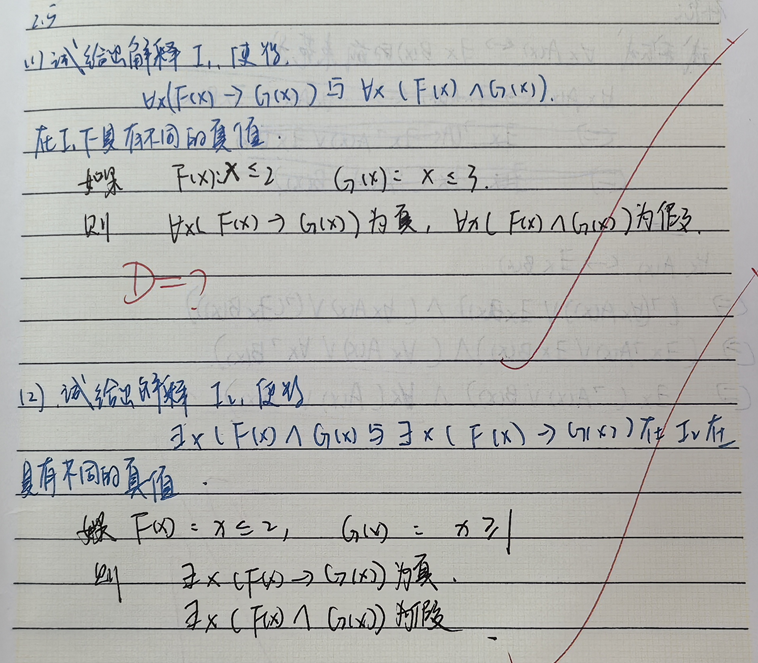 2.5
(1) 试给出解释 I₁, 使得.
∀x(F(x) → G(x)) 与 ∀x (F(x) ∧ G(x)).
在I₁下具有不同的真值.
如果 F(x): x ≤ 2 G(x): x ≤ 3.
则 ∀x( F(x) → G(x)) 为真, ∀x( F(x) ∧ G(x)) 为假.
D = ?
(2) 试给出解释 I₂, 使得
∃x ( F(x) ∧ G(x) 与 ∃x ( F(x) → G(x)) 在 I₂ 在
具有不同的真值.
如果 F(x) = x ≤ 2, G(x) = x ≥ 1
则 ∃x (F(x) → G(x)) 为真.
∃x ( F(x) ∧ G(x)) 为假.